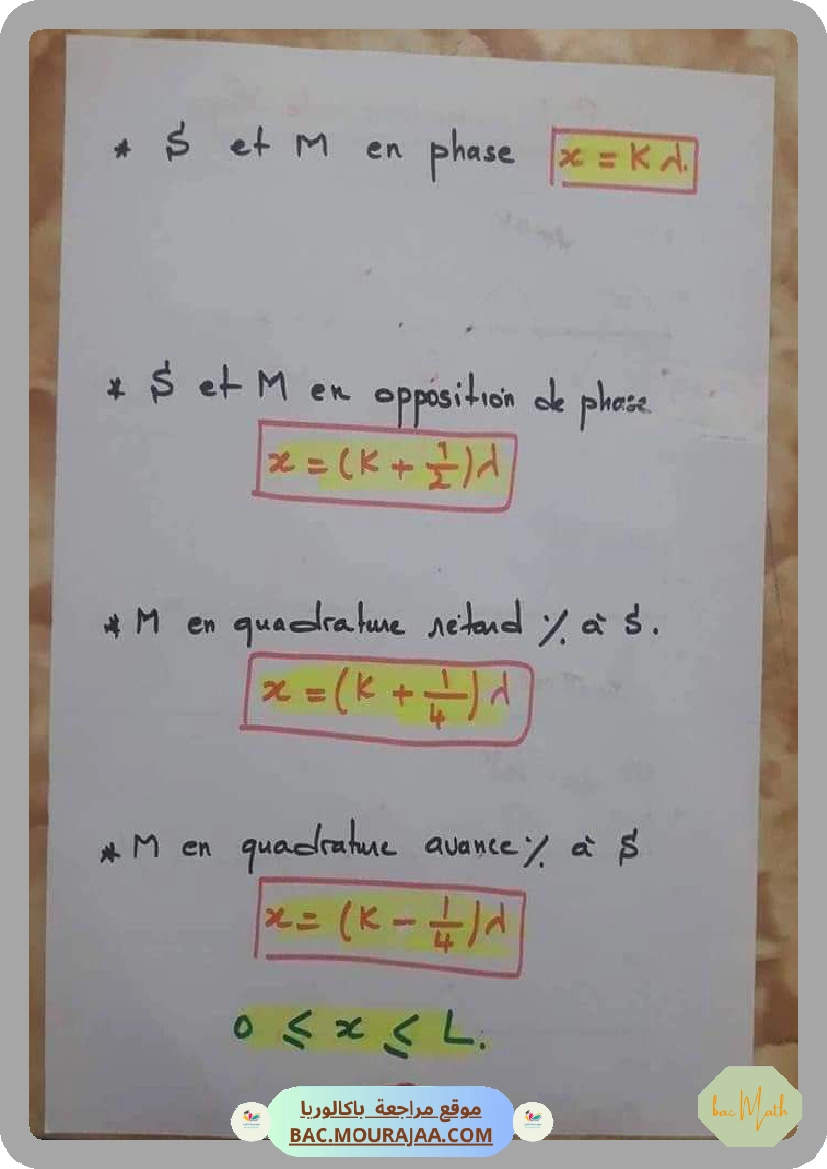 * S et M en phase x = K λ.
* S et M en opposition de phase
x = (K + 1/2) λ
* M en quadrature retard % à S.
x = (K + 1/4) λ
* M en quadrature avance % à S
x = (K - 1/4) λ
0 ≤ x ≤ L.
موقع مراجعة باكالوريا
BAC.MOURAJAA.COM
bac Math